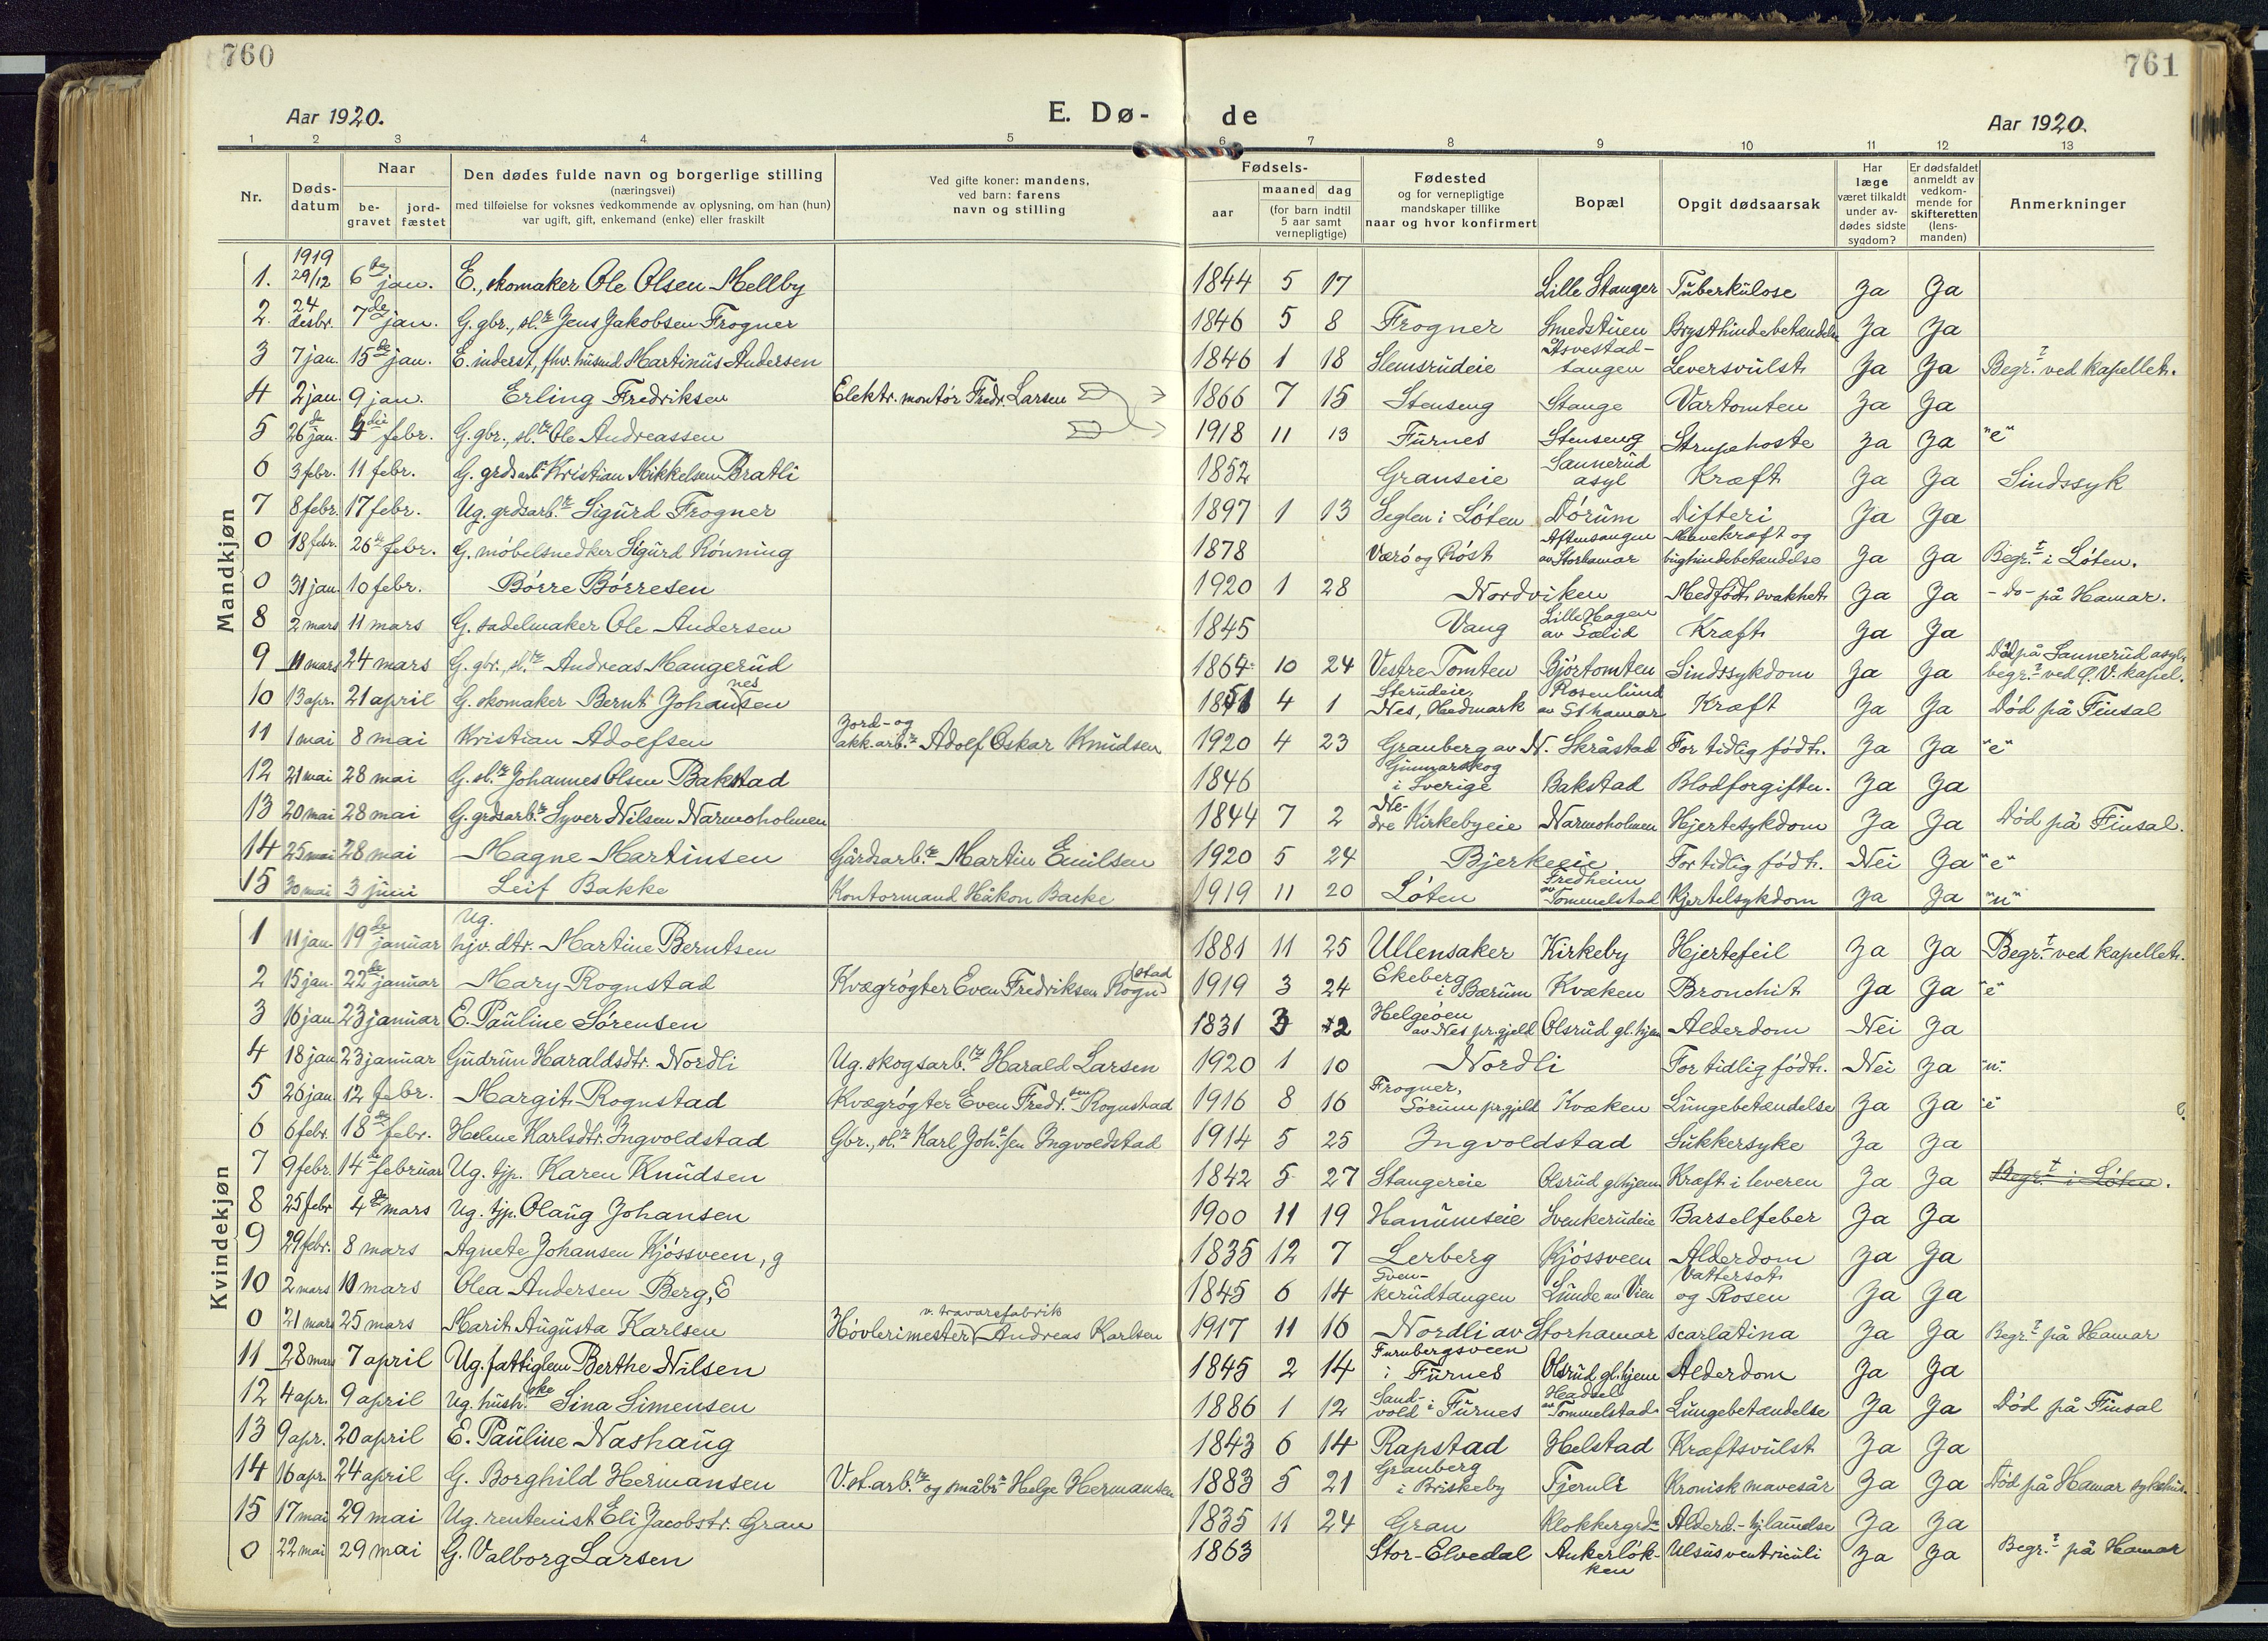 760
761
Aar 1920.
E. Dø-
de
Aar 1920.
1 2 3 4 5 6 7 8 9 10 11 12 13
Nr.
Døds-
datum
Naar
be-
gravet
jord-
fæstet
Den dødes fulde navn og borgerlige stilling
(næringsvei)
med tilføielse for voksnes vedkommende av oplysning, om han (hun)
var ugift, gift, enkemand (enke) eller fraskilt
Ved gifte koner: mandens,
ved barn: farens
navn og stilling
Fødsels-
aar
maaned dag
(for barn indtil
5 aar samt
vernepligtige)
Fødested
og for vernepligtige
mandskaper tillike
naar og hvor konfirmert
Bopæl
Opgit dødsaarsak
Har
læge
været tilkaldt
under av-
dødes sidste
sygdom?
Er dødsfaldet
anmeldt av
vedkom-
mende for
skifteretten
(lens-
manden)
Anmerkninger
Mandkjøn
1. 1919 29/12 6te jan. E., skomaker Ole Olsen Mellby 1844 5 17 Lille Stanger Tuberkulose Ja Ja
2. 24 desbr. 7de jan. G. gbr., sl.r Jens Jakobsen Frogner 1846 5 8 Frogner Smedstuen Brysthindebetændelse Ja Ja
3 7 jan. 15de jan. E. inderst, fhv. husmd Martinus Andersen 1846 1 18 Slemsrudeie Åsvestad-tangen Leversvulst Ja Ja Begr.t ved kapellet.
4 2 jan. 9 jan. Erling Fredriksen Elektr. montør Fredr. Larsen 1866 7 15 Stenseng Stange Vartomten Ja Ja
5 26de jan. febr. G. gbr., sl. Ole Andreassen 1918 11 13 Furnes Stenseng Strupehoste Ja Ja "e"
6 3 febr. 11 febr. G. grdsarb. Kristian Mikkelsen Bratli 1852 Granseie Sannerud asyl Kræft Ja Ja Sindssyk
7 8 febr. 17 febr. Ug. grdsarb. Sigurd Frogner 1897 1 13 Seglen i Løten Dørum Difteri Ja Ja
0 18 febr. 26de febr. G. møbelsnedker Sigurd Rønning 1878 Værø og Røst Aftensangen av Storhamar Mavekræft og bughindebetændelse Ja Ja Begr.t i Løten.
0 31 jan. 10 febr. Børre Børresen 1920 1 28 Nordviken Medfødt svakhet Ja Ja - do - på Hamar.
8 2 mars 11 mars G. sadelmaker Ole Andersen 1845 Vang Lille Hagen av Sælid Kræft Ja Ja
9 11 mars 24 mars G. gbr., sl. Andreas Mangerud 1864 10 24 Vestre Tomten Bjørtomten Sindssykdom Ja Ja Død på Sannerud asyl, begr.t ved Ø. V. kapel.
10 13 apr. 21 april G. skomaker Bernt Johannesen 1851 4 1 Sterudeie, Nes, Hedmark Rosenlund av St hamar Kræft Ja Ja Død på Finsal
11 1 mai 8 mai Kristian Adolfsen Jord- og akk. arb. Adolf Oskar Knudsen 1920 4 23 Granberg av N. Skråstad For tidlig født. Ja Ja "e"
12 21 mai 28 mai G. sl. Johannes Olsen Bakstad 1846 Gunnarskog i Sverige Bakstad Blodforgiftn. Ja Ja
13 20 mai 28 mai G. grdsarb. Syver Nilsen Narmoholmen 1844 7 2 Nedre Kirkebyeie Narmoholmen Hjertesykdom Ja Ja Død på Finsal.
14 25 mai 28 mai Magne Martinsen Gårdsarb. Martin Emilsen 1920 5 24 Bjerkeeie For tidlig født. Nei Ja "e"
15 30 mai 3 juni Leif Bakke Kontormand Håkon Backe 1919 11 20 Løten Fredheim av Tommelstad Kjertelsykdom Ja Ja "u"
Kvindekjøn
1 11 jan. 19de januar Ug. hjv. dtr. Martine Berntsen 1881 11 25 Ullensaker Kirkeby Hjertefeil Ja Ja Begr.t ved kapellet.
2 15 jan. 22de januar Mary Rognstad Kvægrøgter Even Fredriksen Rognstad 1919 3 24 Ekeberg i Bærum Kvæken Bronchit Ja Ja "e"
3 16 jan 23 januar E. Pauline Sørensen 1831 3 2 Helgeøen av Nes pr.gjeld Olsrud gl.hjem Alderdom Nei Ja
4 18 jan 23 januar Gudrun Haraldsdtr. Nordli Ug. skogsarb. Harald Larsen 1920 1 10 Nordli For tidlig født. Nei Ja "u"
5 26 jan 12 febr. Margit Rognstad Kvægrøgter Even Fredr.sen Rognstad 1916 8 16 Frogner, Sørum pr.gjeld Kvæken Lungebetændelse Ja Ja "e"
6 6 febr. 18de febr. Helene Karlsdtr. Ingvoldstad Gbr., sl.r Karl Joh.sen Ingvoldstad 1914 5 25 Ingvoldstad Sukkersyke Ja Ja
7 9 febr. 14de februar Ug. tjp. Karen Knudsen 1842 5 27 Stangereie Olsrud gl.hjem Kræft i leveren Ja Ja Begr.t i Løten.
8 25 febr 4de mars Ug. tjp. Olaug Johansen 1900 11 19 Hanumseie Svenkerudeie Barselfeber Ja Ja
9 29 febr. 8 mars Agnete Johansen Kjøssveen, g 1835 12 7 Lerberg Kjøssveen Alderdom Ja Ja
10 2 mars 10 mars Olea Andersen Berg, E 1845 6 14 Svenkerudtangen Lunde av Vien Vattersot og Rosen Ja Ja
0 21 mars 25 mars Marit Augusta Karlsen Høvlerimester v. travarefabrik Andreas Karlsen 1917 11 16 Nordli av Storhamar scarlatina Ja Ja Begr.t på Hamar
11 28 mars 7 april Ug. fattiglem Berthe Nilsen 1845 2 14 Furubergsveen i Furnes Olsrud gl.hjem Alderdom Ja Ja
12 4 apr. 9 april Ug. hush. Sina Simensen 1886 1 12 Sandvold i Furnes av Tommelstad Lungebetændelse Ja Ja Død på Finsal
13 9 apr. 20 april E. Pauline Nashaug 1843 6 14 Rapstad Helstad Kræftsvulst Ja Ja
14 16 apr. 24 april G. Borghild Hermansen V. st. arb. og småbr Helge Hermansen 1883 5 21 Granberg i Briskeby Fjeruli Kronisk mavesår Ja Ja Død på Hamar sykehus.
15 17 mai 29 mai Ug. rentenist Eli Jacobstr. Gran 1835 11 24 Gran Klokkergrdn Alderd.- hj.lamelse Ja Ja
0 22 mai 29 mai G. Valborg Larsen 1863 Stor-Elvedal Ankerløk-ken Ulsus ventriculi Ja Ja Begr.t på Hamar